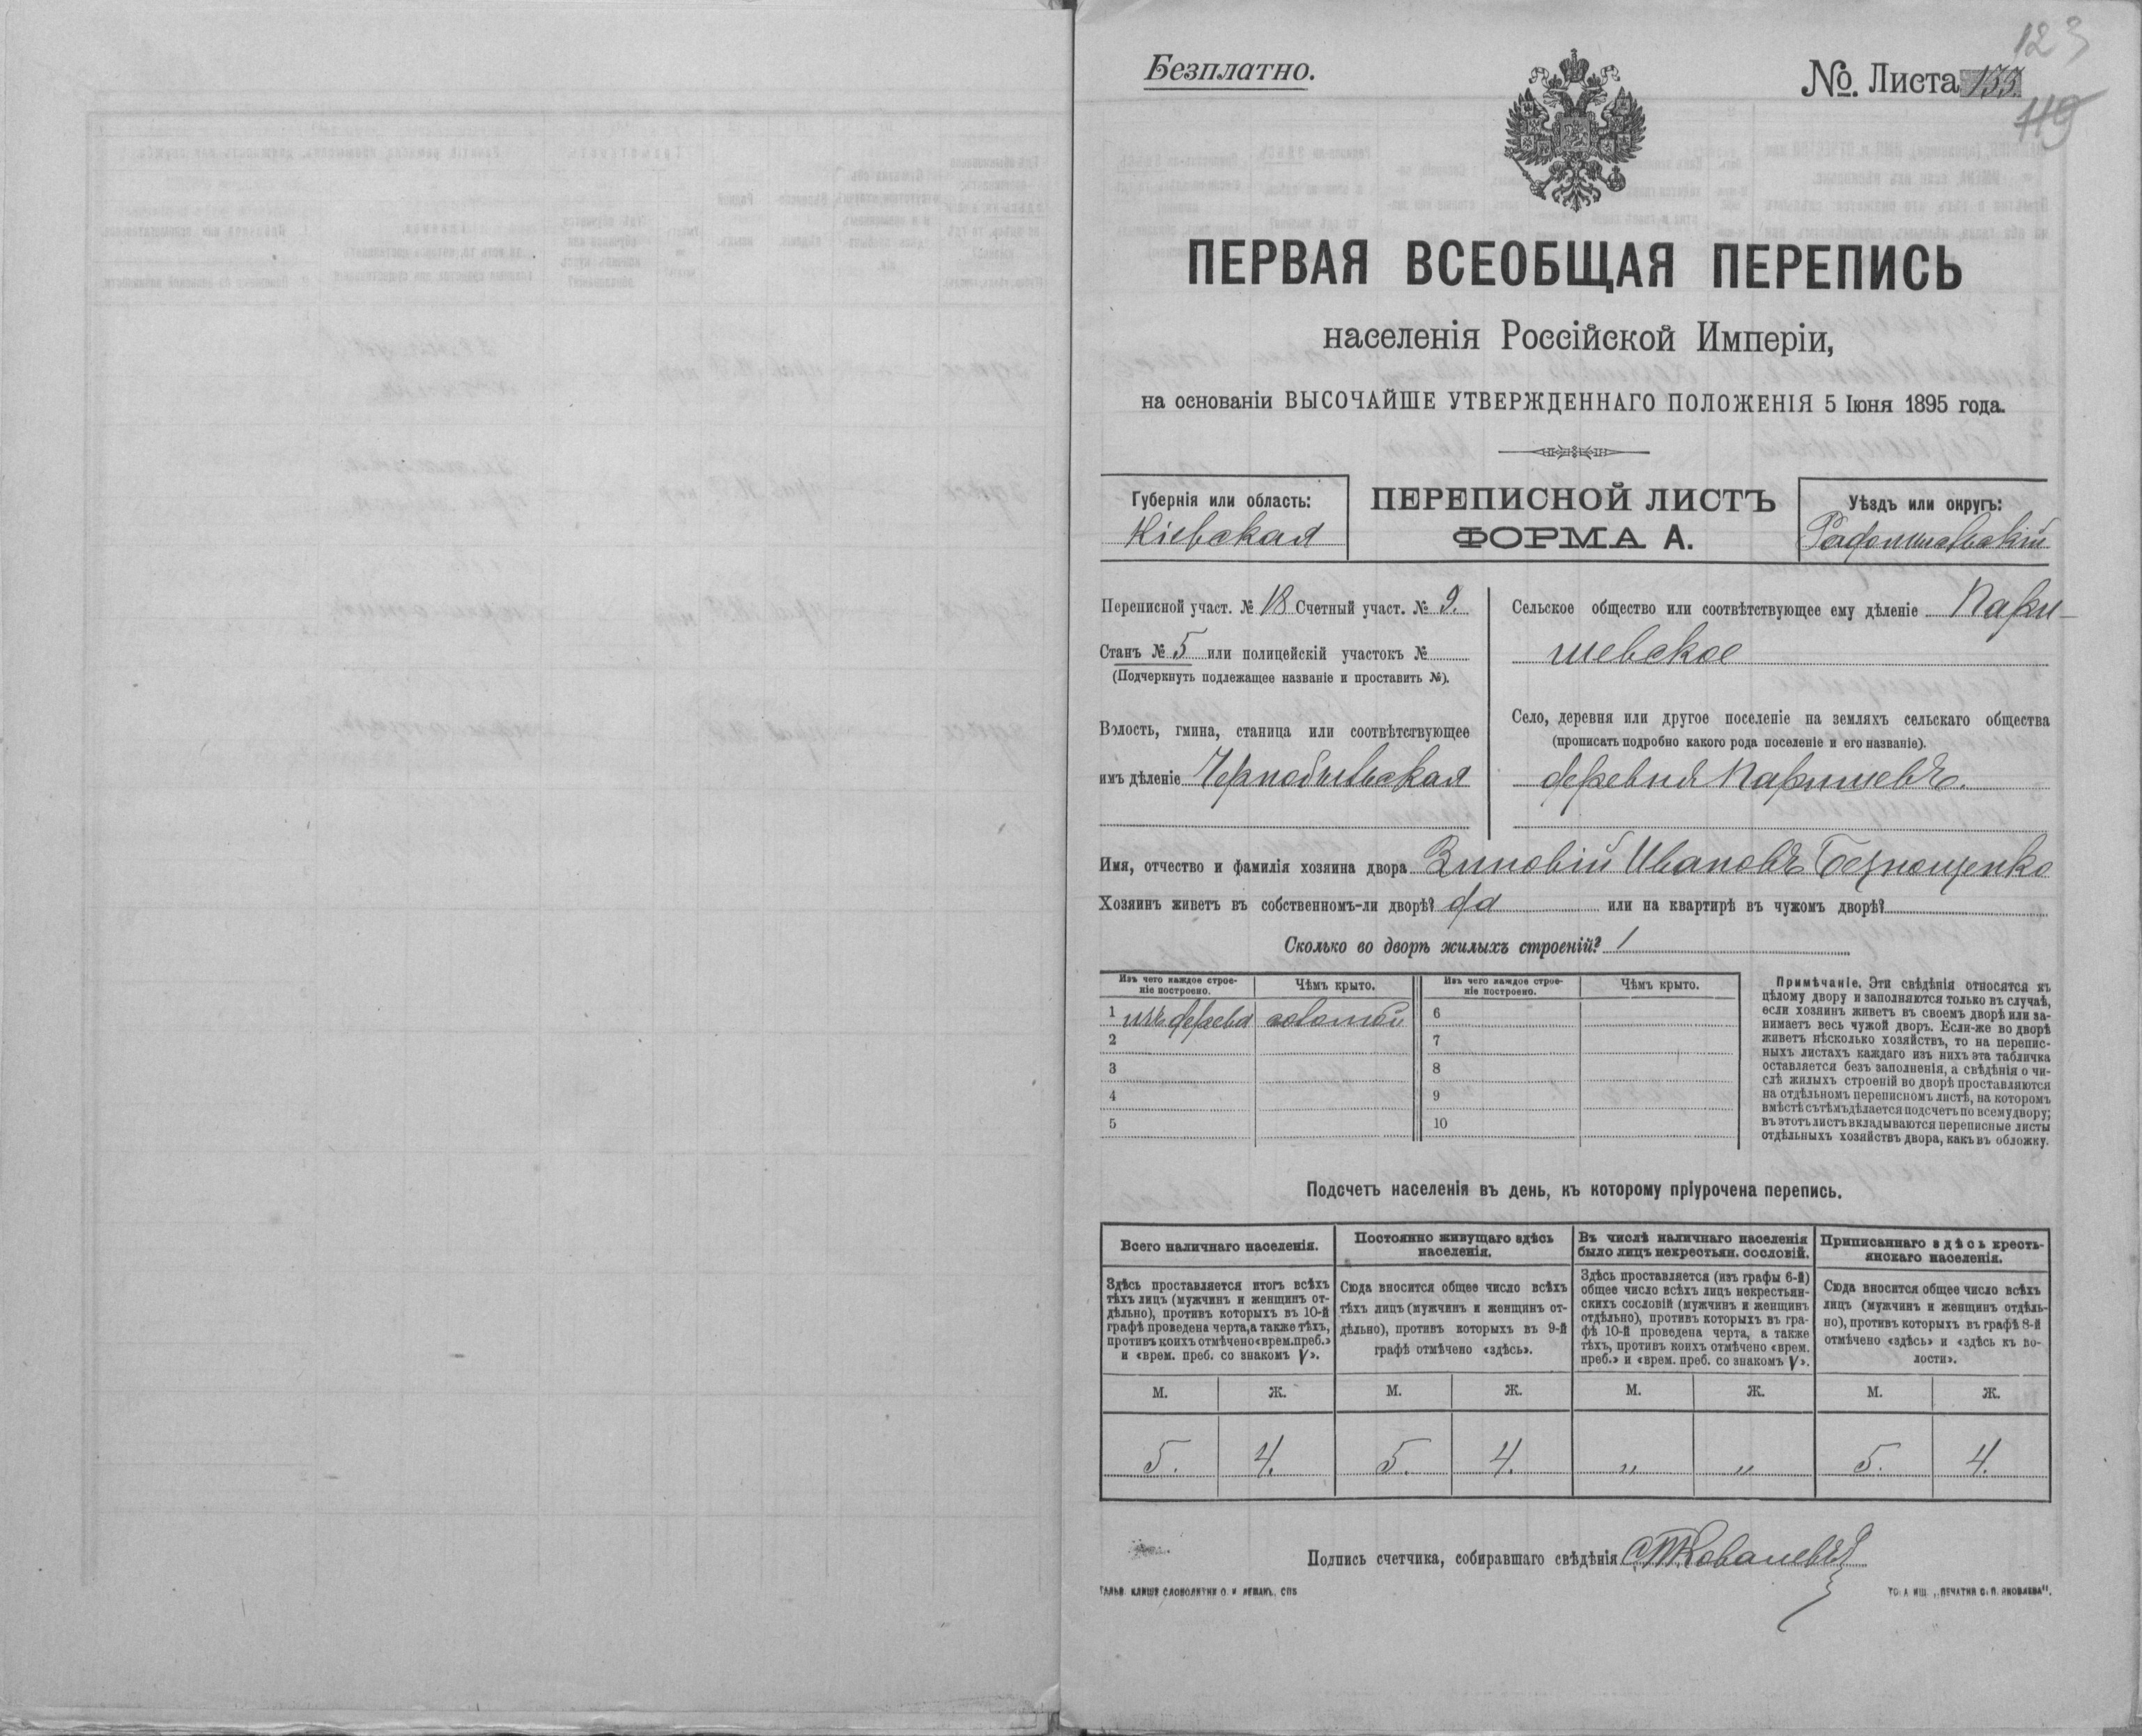 123
Безплатно.
№. Листа 133
119
ПЕРВАЯ ВСЕОБЩАЯ ПЕРЕПИСЬ
населенія Россійской Имперіи,
на основаніи ВЫСОЧАЙШЕ УТВЕРЖДЕННАГО ПОЛОЖЕНІЯ 5 Іюня 1895 года.
Губернія или область:
Кіевская
ПЕРЕПИСНОЙ ЛИСТЪ
ФОРМА А.
Уѣздъ или округъ:
Радомысльскій
Переписной участ. № 18 Счетный участ. № 9.
Станъ № 5 или полицейскій участокъ №
(Подчеркнуть подлежащее названіе и проставить №).
Волость, гмина, станица или соотвѣтствующее
имъ дѣленіе Чернобыльская
Сельское общество или соотвѣтствующее ему дѣленіе Пары-
шевское
Село, деревня или другое поселеніе на земляхъ сельскаго общества
(прописать подробно какого рода поселеніе и его названіе).
деревня Парышевъ.
Имя, отчество и фамилія хозяина двора Зиновій Ивановъ Безнощенко
Хозяинъ живетъ въ собственномъ-ли дворѣ? да или на квартирѣ въ чужомъ дворѣ?
Сколько во дворѣ жилыхъ строеній? 1
Изъ чего каждое строе-
ніе построено.
Чѣмъ крыто.
Изъ чего каждое строе-
ніе построено.
Чѣмъ крыто.
1 изъ дерева соломой 6
2 7
3 8
4 9
5 10
Примѣчаніе. Эти свѣдѣнія относятся къ
цѣлому двору и заполняются только въ случаѣ,
если хозяинъ живетъ въ своемъ дворѣ или за-
нимаетъ весь чужой дворъ. Если-же во дворѣ
живетъ нѣсколько хозяйствъ, то на перепис-
ныхъ листахъ каждаго изъ нихъ эта табличка
оставляется безъ заполненія, а свѣдѣнія о чи-
слѣ жилыхъ строеній во дворѣ проставляются
на отдѣльномъ переписномъ листѣ, на которомъ
вмѣстѣ съ тѣмъ дѣлается подсчетъ по всему двору;
въ этотъ листъ вкладываются переписные листы
отдѣльныхъ хозяйствъ двора, какъ въ обложку.
Подсчетъ населенія въ день, къ которому пріурочена перепись.
Всего наличнаго населенія.
Здѣсь проставляется итогъ всѣхъ
тѣхъ лицъ (мужчинъ и женщинъ от-
дѣльно), противъ которыхъ въ 10-й
графѣ проведена черта, а также тѣхъ,
противъ коихъ отмѣчено «врем. преб.»
и «врем. преб. со знакомъ V».
Постоянно живущаго здѣсь
населенія.
Сюда вносится общее число всѣхъ
тѣхъ лицъ (мужчинъ и женщинъ от-
дѣльно), противъ которыхъ въ 9-й
графѣ отмѣчено «здѣсь».
Въ числѣ наличнаго населенія
было лицъ некрестьян. сословій.
Здѣсь проставляется (изъ графы 6-й)
общее число всѣхъ лицъ некрестьян-
скихъ сословій (мужчинъ и женщинъ
отдѣльно), противъ которыхъ въ гра-
фѣ 10-й проведена черта, а также
тѣхъ, противъ коихъ отмѣчено «врем.
преб.» и «врем. преб. со знакомъ V».
Приписаннаго здѣсь кресть-
янскаго населенія.
Сюда вносится общее число всѣхъ
лицъ (мужчинъ и женщинъ отдѣль-
но), противъ которыхъ въ графѣ 8-й
отмѣчено «здѣсь» и «здѣсь къ во-
лости».
М. Ж. М. Ж. М. Ж. М. Ж.
5. 4. 5. 4. „ „ 5. 4.
Подпись счетчика, собиравшаго свѣдѣнія Ковалевъ